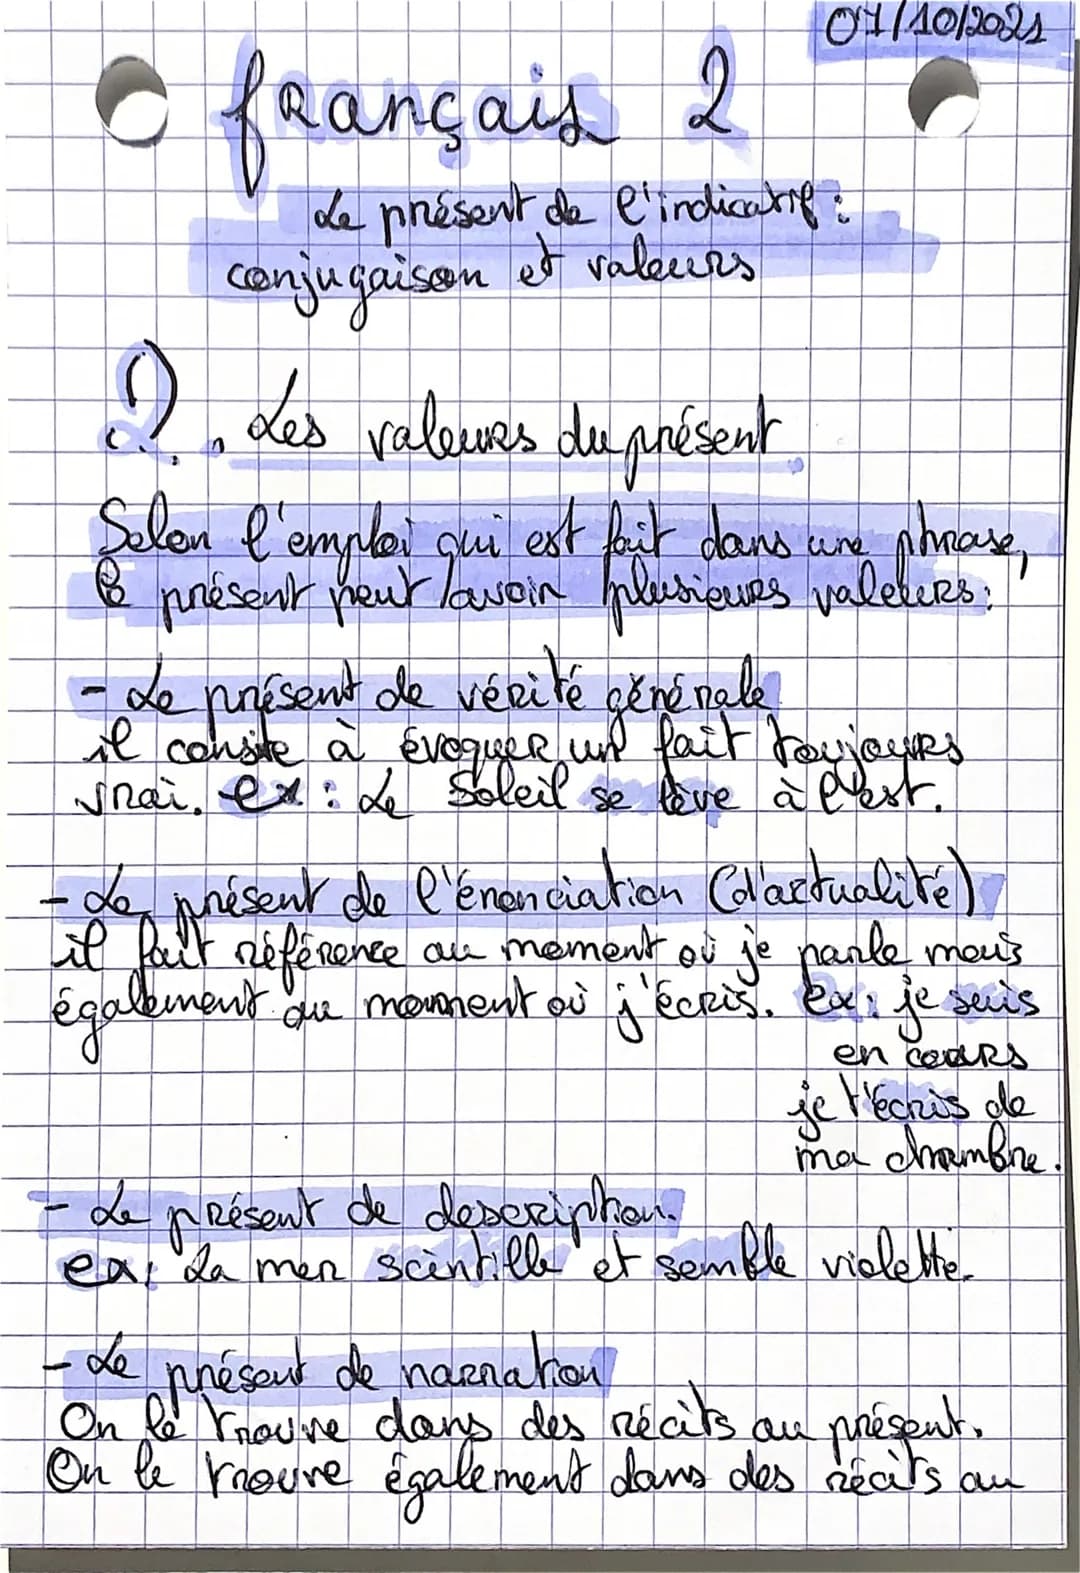 07/10/2021
français 2
Le présent de l'indicatif :
conjugaison et valeurs
2. Les valeurs du présent
Selon l'emploi qui est fait dans une phrase,
le présent peut avoir plusieurs valeurs :
- Le présent de vérité générale
il consite à évoquer un fait toujours
vrai. ex : Le Soleil se lève à l'est.
- Le présent de l'énonciation (d'actualité)
il fait référence au moment où je parle mais
également au moment où j'écris. ex : je suis
en cours
je t'écris de
ma chambre.
- Le présent de description.
ex : La mer scintille et semble violette.
- Le présent de narration
On le trouve dans des récits au présent.
On le trouve également dans des récits au